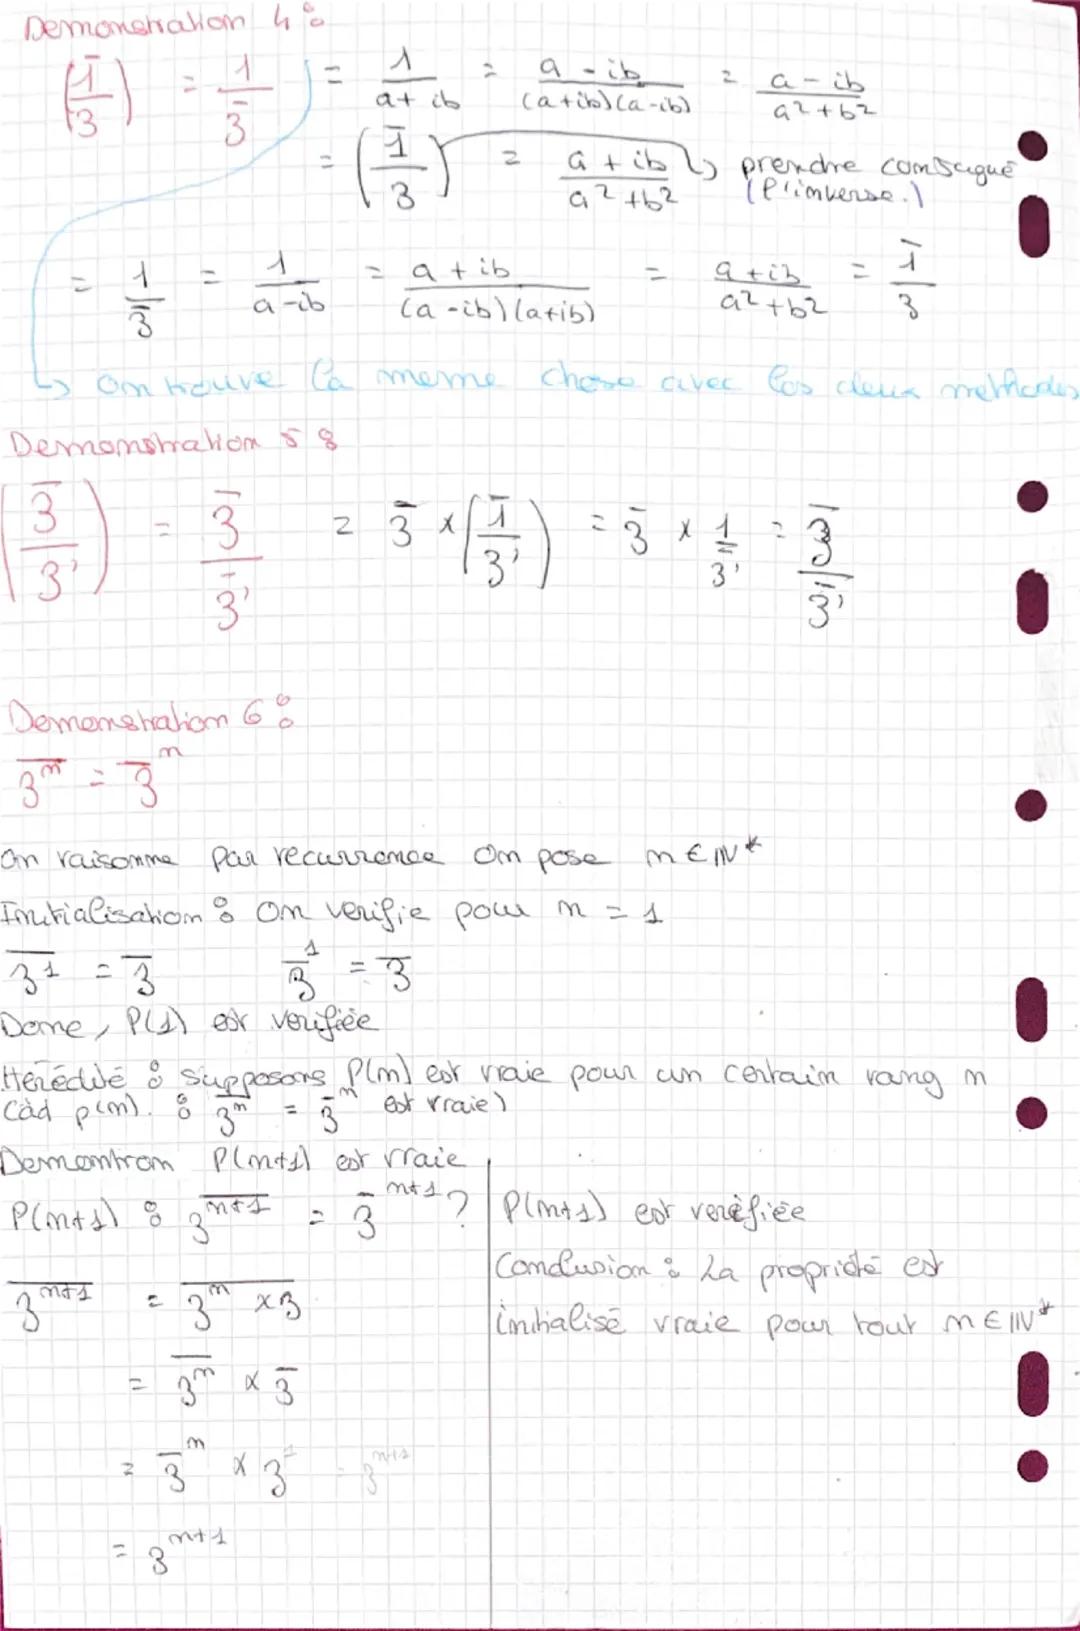 Demonstration 4 :
(1̄/3) = 1/3̄ = 1/(a+ib) = (a-ib)/((a+ib)(a-ib)) = (a-ib)/(a²+b²)
= (1̄/3) = (a+ib)/(a²+b²) ↳ prendre conjugué (l'inverse.)
= 1/3̄ = 1/(a-ib) = (a+ib)/((a-ib)(a+ib)) = (a+ib)/(a²+b²) = 1̄/3
↳ on trouve la meme chose avec les deux methodes
Demonstration 5 :
(3̄/3') = 3̄/3̄' = 3̄ × (1̄/3') = 3̄ × 1/3̄' = 3̄/3̄'
Demonstration 6 :
\overline{3^n} = 3̄^n
On raisonne par recurrence on pose n ∈ ℕ*
Initialisation : On verifie pour n = 1
\overline{3^1} = 3̄   3̄^1 = 3̄
Donc, P(1) est verifiée
Hérédité : Supposons P(n) est vraie pour un certain rang n
Càd p(n) : \overline{3^n} = 3̄^n est vraie)
Demontron P(n+1) est vraie
P(n+1) : \overline{3^{n+1}} = 3̄^{n+1} ?
\overline{3^{n+1}} = \overline{3^n × 3}
= \overline{3^n} × 3̄
= 3̄^n × 3^1 = 3^{n+1}
= 3^{n+1}
P(n+1) est verèfiée
Conclusion : La propriété est
initialisé vraie pour tout n ∈ ℕ*